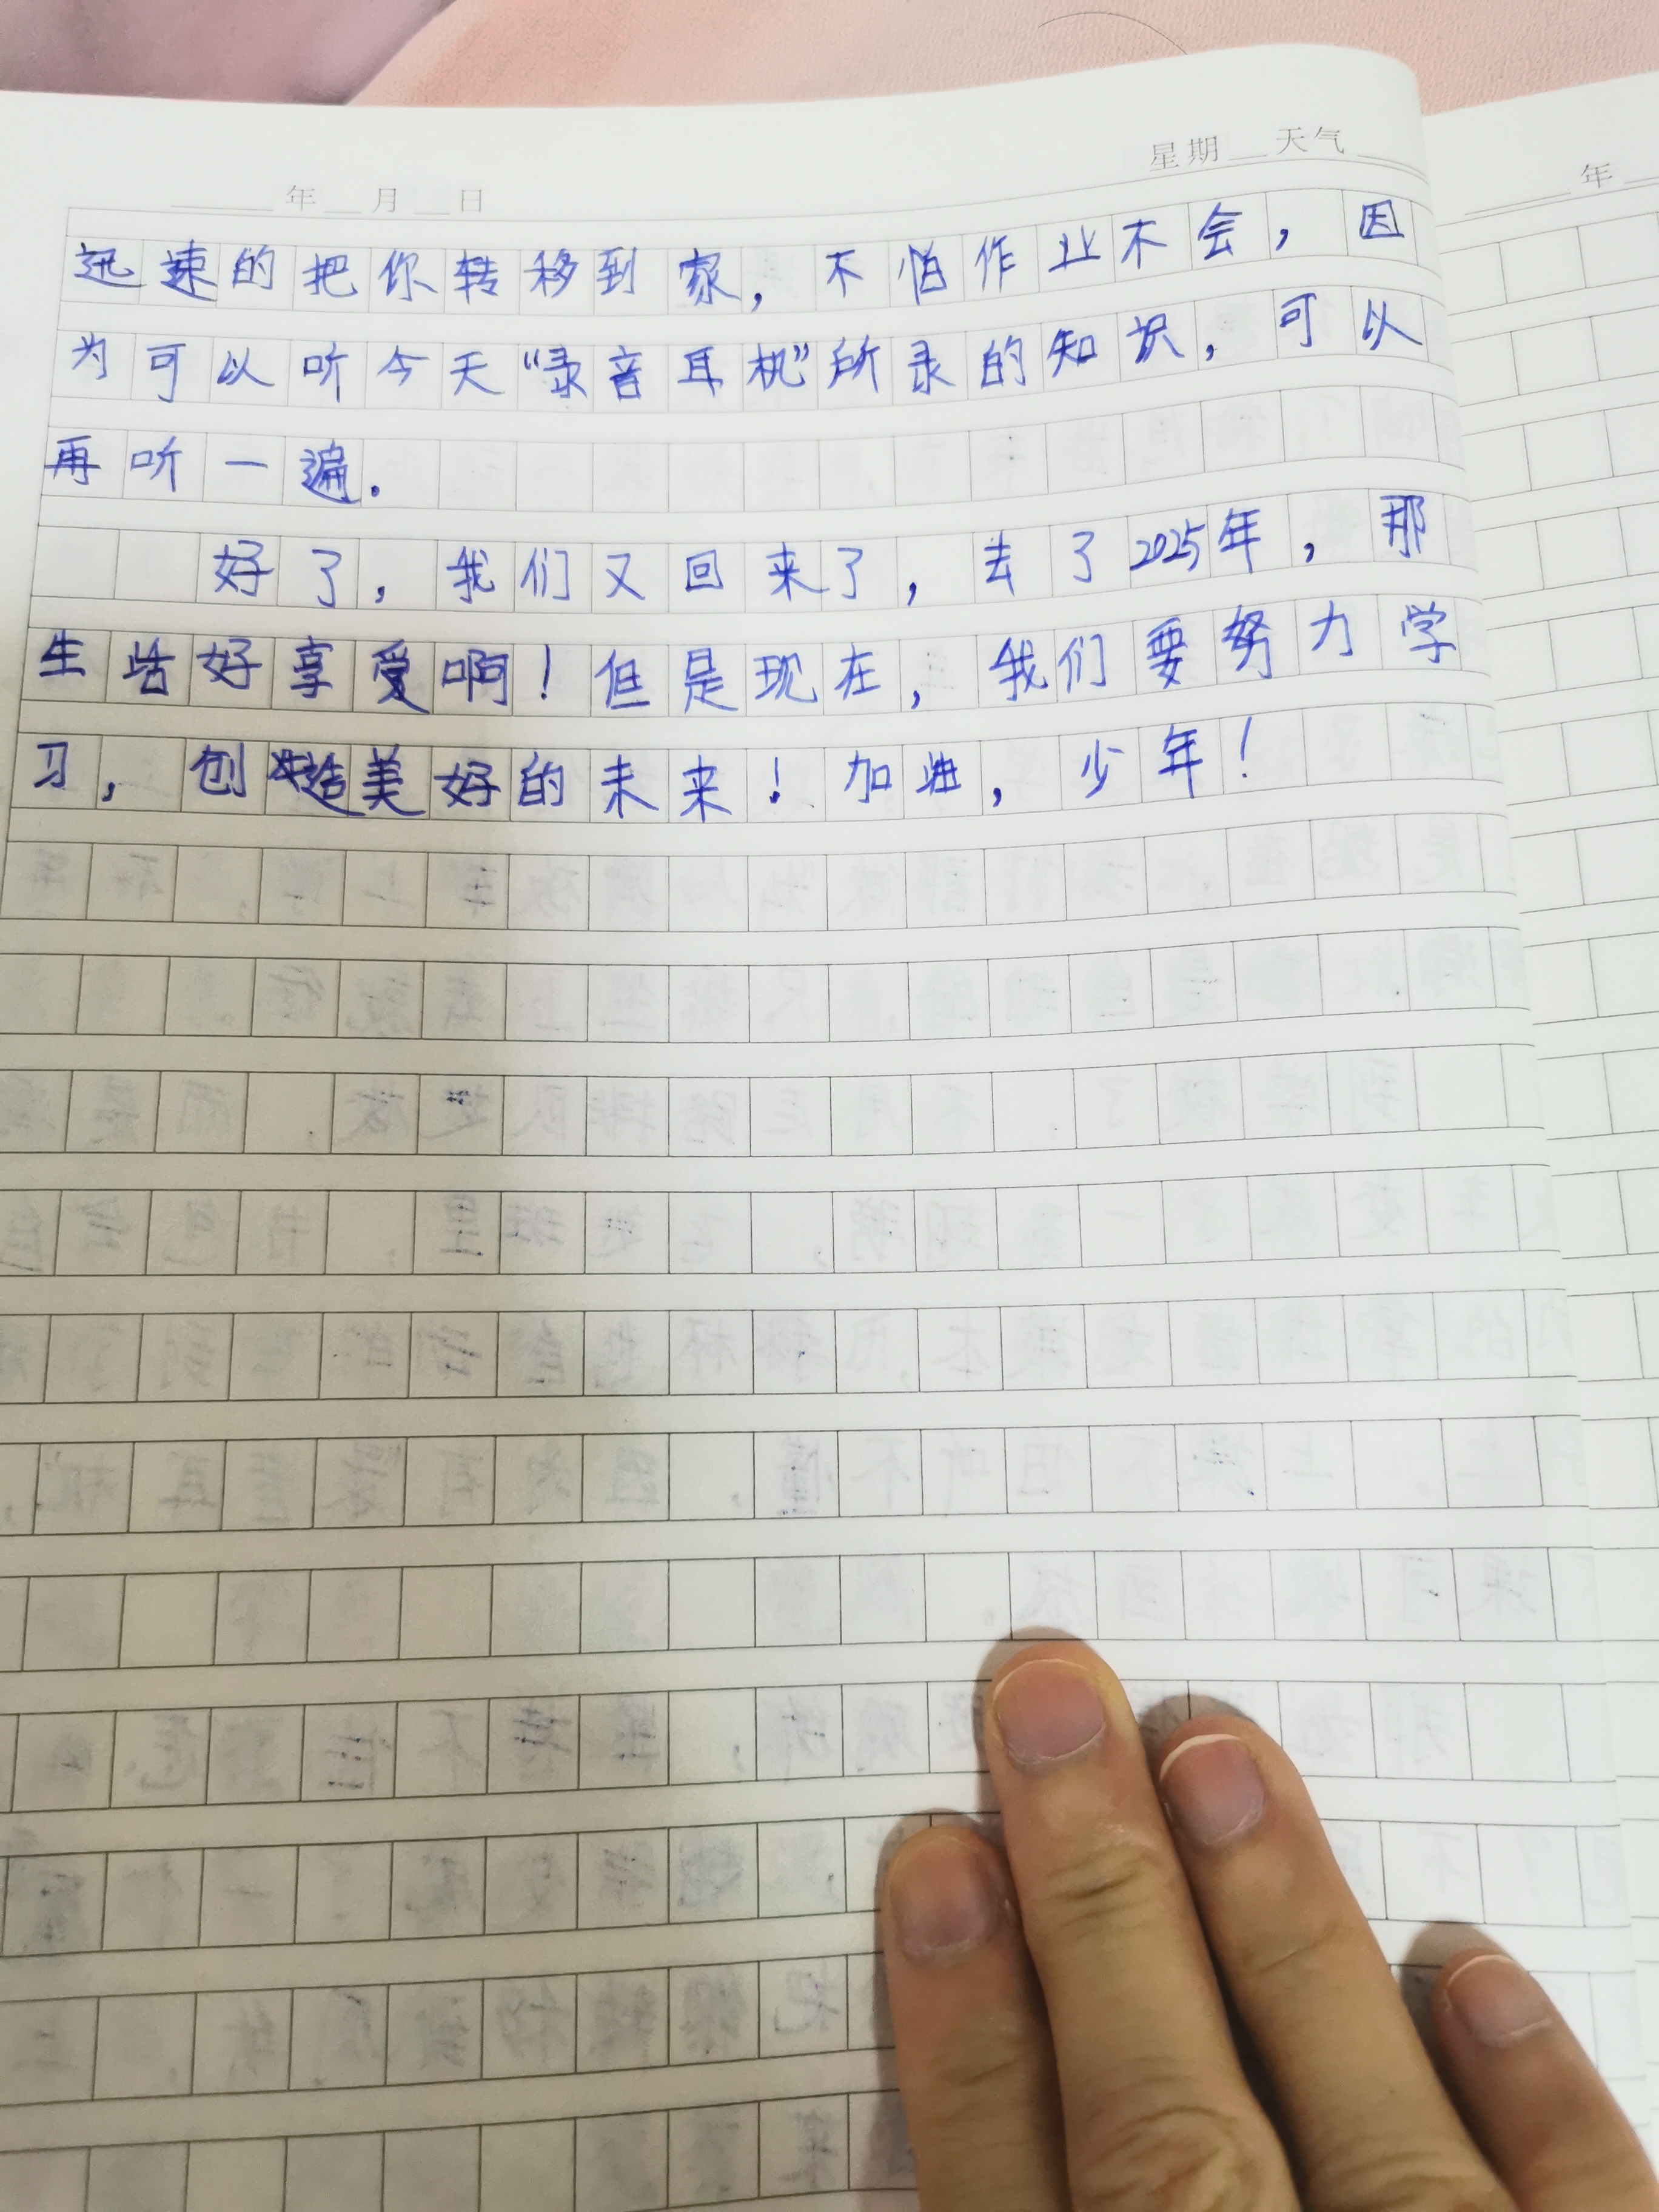 星期 天气
年 月 日
年
迅速的把你转移到家，不怕作业不会，因
为可以听今天“录音耳机”所录的知识，可以
再听一遍.
好了，我们又回来了，去了2025年，那
生活好享受啊！但是现在，我们要努力学
习，创造美好的未来！加油，少年！